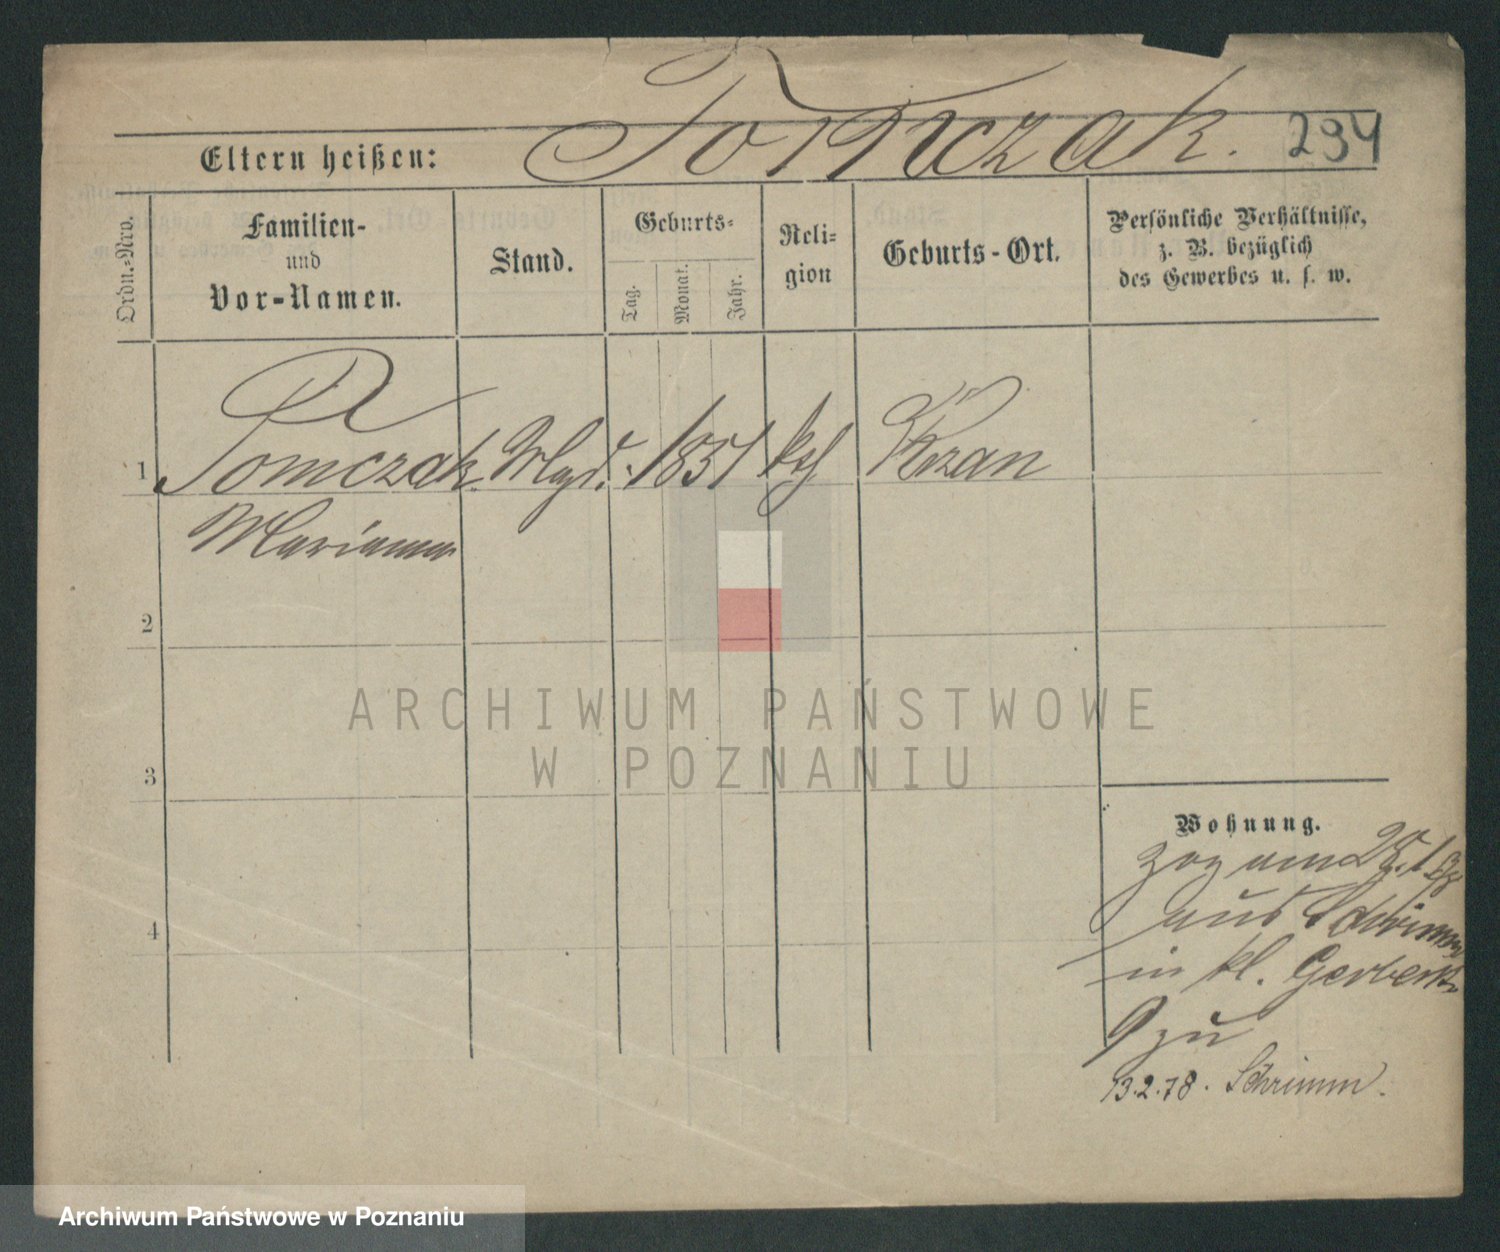 Tomczak. 294
Eltern heißen:
Ordn.-Nro.
Familien-
und
Vor-Namen.
Stand.
Geburts-
Tag.
Monat.
Jahr.
Reli-
gion
Geburts-Ort.
Persönliche Verhältnisse,
z. B. bezüglich
des Gewerbes u. s. w.
1 Tomczak Magd. 1851 kth Xzan
Marianna
2
3
4
Wohnung.
zog am 28.1.78
aus Schrimm
in kl. Gerberstr
9 zu
13.2.78. Schrimm.
ARCHIWUM PAŃSTWOWE
W POZNANIU
Archiwum Państwowe w Poznaniu